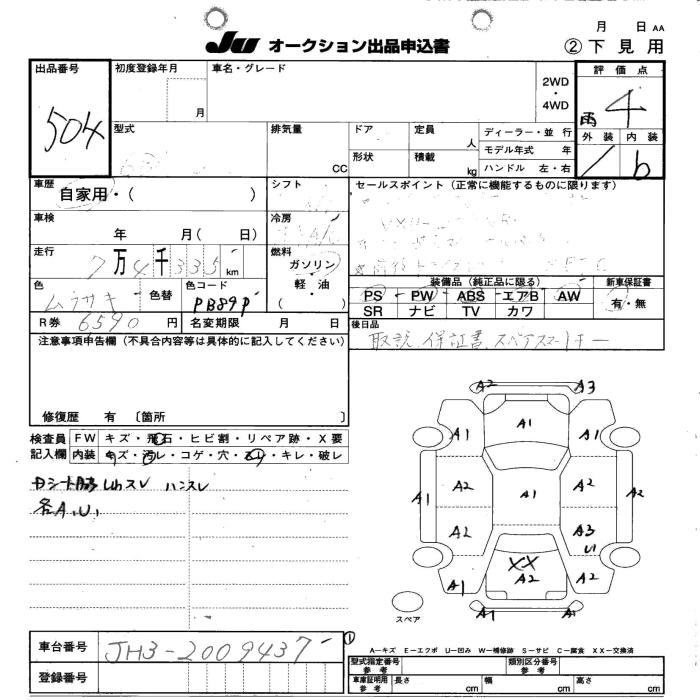 月 日 AA
JU オークション出品申込書
② 下見用
出品番号
504
初度登録年月
月
車名・グレード
2WD
・
4WD
評価点
雨 4
外装 内装
b
型式
排気量
CC
ドア
定員
人
ディーラー・並 行
モデル年式 年
形状
積載
kg
ハンドル 左・右
車歴
自家用・( )
シフト
セールスポイント (正常に機能するものに限ります)
車検
年 月( 日)
冷房
走行
7万4千335km
燃料
ガソリン・
軽・油
( )
装備品 (純正品に限る)
PS PW ABS エアB AW
SR ナビ TV カワ
新車保証書
有・無
色
ムラサキ
色替
色コード
PB89P
R券 6590 円
名変期限 月 日
後日品
取説 保証書 スペアスマートキー
注意事項申告欄 (不具合内容等は具体的に記入してください)
修復歴 有 〔箇所 〕
検査員
記入欄
FW キズ・飛石・ヒビ割・リペア跡・X要
内装 キズ・汚レ・コゲ・穴・スリ・キレ・破レ
ハンスレ
各A.U.
A2 A3
A1 A1 A1
A1 A2 A1 A2 A2
A2 A3
U1
XX
A1 A2 A2
A1 A1
スペア
① A-キズ E-エクボ U-凹み W-補修跡 S-サビ C-腐食 XX-交換済
車台番号
JH3-2009437
登録番号
型式指定番号
参考
類別区分番号
参考
車庫証明用
参考
長さ cm 幅 cm 高さ cm